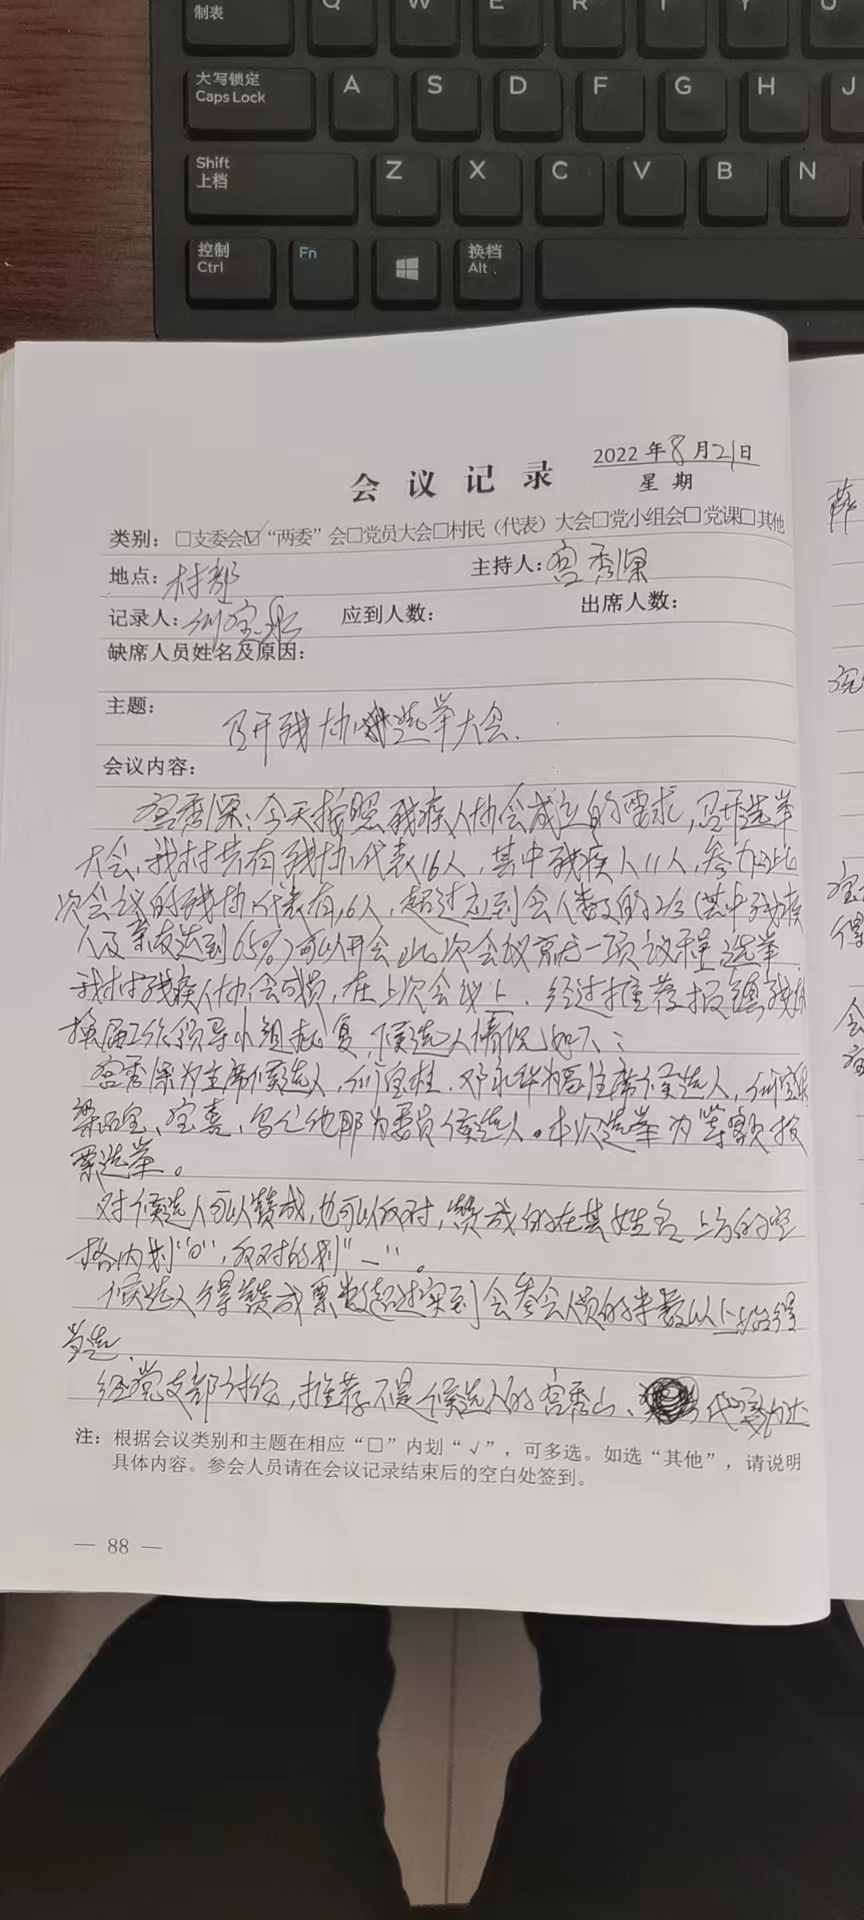 制表 Q W E R T Y U
大写锁定 A S D F G H J
Caps Lock
Shift Z X C V B N
上档
控制 Fn 换档
Ctrl Alt
2022年8月21日
会议记录
星期
类别：□支委会☑“两委”会□党员大会□村民（代表）大会□党小组会□党课□其他
地点：村部 主持人：宫秀深
记录人： 应到人数： 出席人数：
缺席人员姓名及原因：
主题：
召开残协选举大会.
会议内容：
宫秀深：今天按照残疾人协会成立的要求，召开选举
大会，我村共有残协代表16人，其中残疾人11人，参加此
次会议的残协代表有16人，超过应到会人数的2/3（其中残疾
人及亲友达到65%）可以开会，此次会议有一项议程：选举
我村残疾人协会成员，在上次会议上，经过推荐报镇残联
换届工作领导小组批复，候选人情况如下：
宫秀深为主席候选人，何宝柱、邓永华为副主席候选人，
宝喜、为委员候选人。本次选举为等额投
票选举。
对候选人可以赞成，也可以反对，赞成的在其姓名上方的空
格内划“O”，反对的划“—”。
候选人得赞成票数超过实到会参会人员的半数以上始得
当选.
经党支部讨论，推荐不是候选人的宫秀山、
注：根据会议类别和主题在相应“□”内划“√”，可多选。如选“其他”，请说明
具体内容。参会人员请在会议记录结束后的空白处签到。
— 88 —